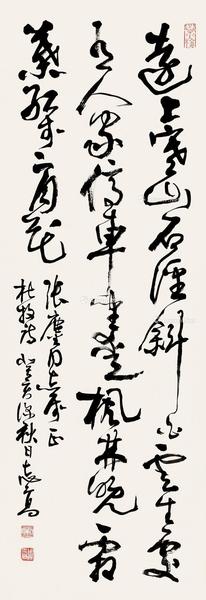 遠上寒山石徑斜白雲生處
有人家停車坐愛楓林晚霜
葉紅於二月花
張同志屬正
杜牧詩癸亥深秋日志高